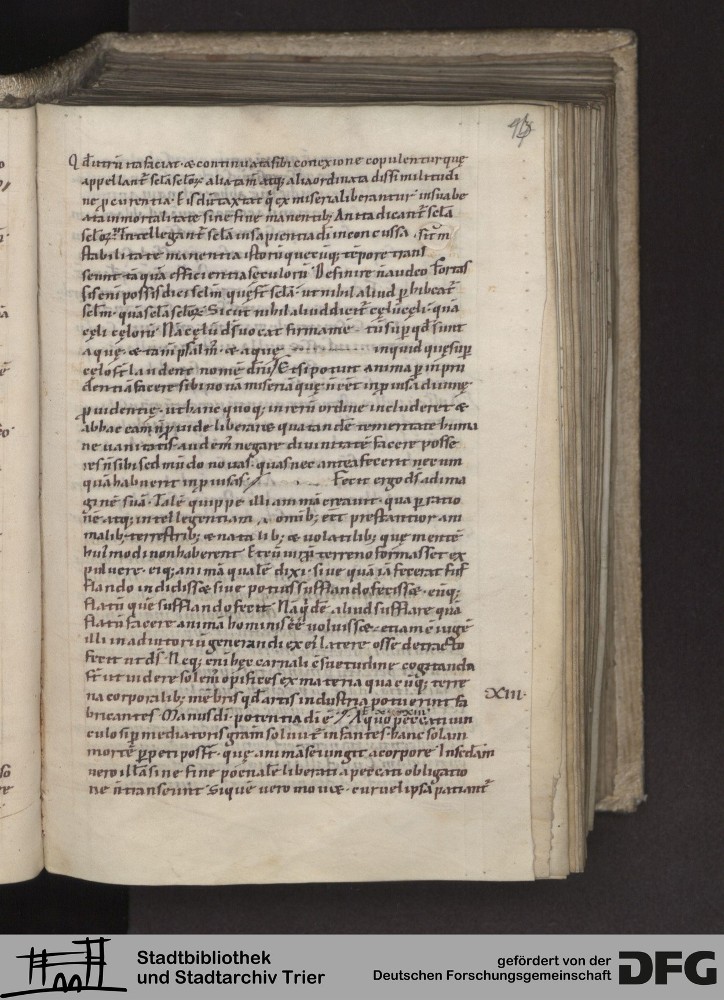 Qd utrū ita faciat · & continuata sibi conexione copulentur quę
appellant̄ scła scłoꝝ alia tam̄ atq; alia ordinata dissimilitudi
ne p̄currentia · Eis dūtaxat q̄ ex miseria liberantur in sua be
ata inmortalitate sine fine manentib; An ita dicant̄ scła
scłoꝝ · Intellegant̄ scła in sapientia dī inconcussa
stabilitate manentia istorū quę cū tēpore trans
eunt tāquā efficientia sęculorū Definire n̄ audeo Fortas
sis enī possis dici scłm quę st̄ scła · ut nihil aliud phibeat̄
scłm · quā scła scłoꝝ Sicut nihil aliud dicit̄ cęlū cęli · quā
cęli cęlorū Nā cęlū ds̄ vocat firmamtū · sup qd̄ sunt
aquę · & tam̄ psalm̄ · & aquę inquid quę sup
cęlos st̄ laudent nomē dn̄i / Et si potuit anima p inpru
dentiā facere sibi nouā miseriā quę n̄ eēt inpuisa diuinę
p̄uidentię · ut hanc quoq; in rerū ordine includeret &
ab hac eam n̄ p̄uide liberare qua tandē temeritate huma
ne uanitatis audem̄ negare diuinitatē facere posse
res n̄ sibi sed mūdo nouas · quas nec antea fecerit nec um
quā habuerit inpuisas / Fecit ergo ds̄ ad ima
ginē suā · Talē quippe illi animā creauit · qua p ratio
nē atq; intellegentiam omib; eēt prestantior ani
malib; terrestrib; & natalib; & volatilib; que mentē
hui'modi non haberent Et cū uirū terreno formasset ex
puluere · eiq; animā qualē dixi · siue quā iā fecerat suf
flando indidissæ siue potius sufflando fecissæ · eūq;
flatū quē sufflando fecit Nā qd̄ ē aliud sufflare quā
flatū facere animā hominis eē voluissæ · etiam cōiugē
illi in adiutoriū generandi ex ei' latere osse detracto
fecit ut ds̄ · Neq; enī hęc carnali cōsuetudine cogitanda
st̄ ut uidere solem̄ opifices ex materia qua cūq; terre
na corporalib; mēbris qd̄ artis industria potuerint fa
bricantes · Manus dī · potentia dī ē // A quo peccati uin
XIII ·
culo si p mediatoris gram̄ soluunt̄ infantes · hanc solam
mortē ppeti posst̄ · quę animā seiungit a corpore In scdam̄
uero illā sine fine pęnale liberati a peccati obligatio
ne n̄ transeunt Si quē uero mouet · cur uel ipsā patiant̄
Stadtbibliothek
und Stadtarchiv Trier
gefördert von der
Deutschen Forschungsgemeinschaft
DFG